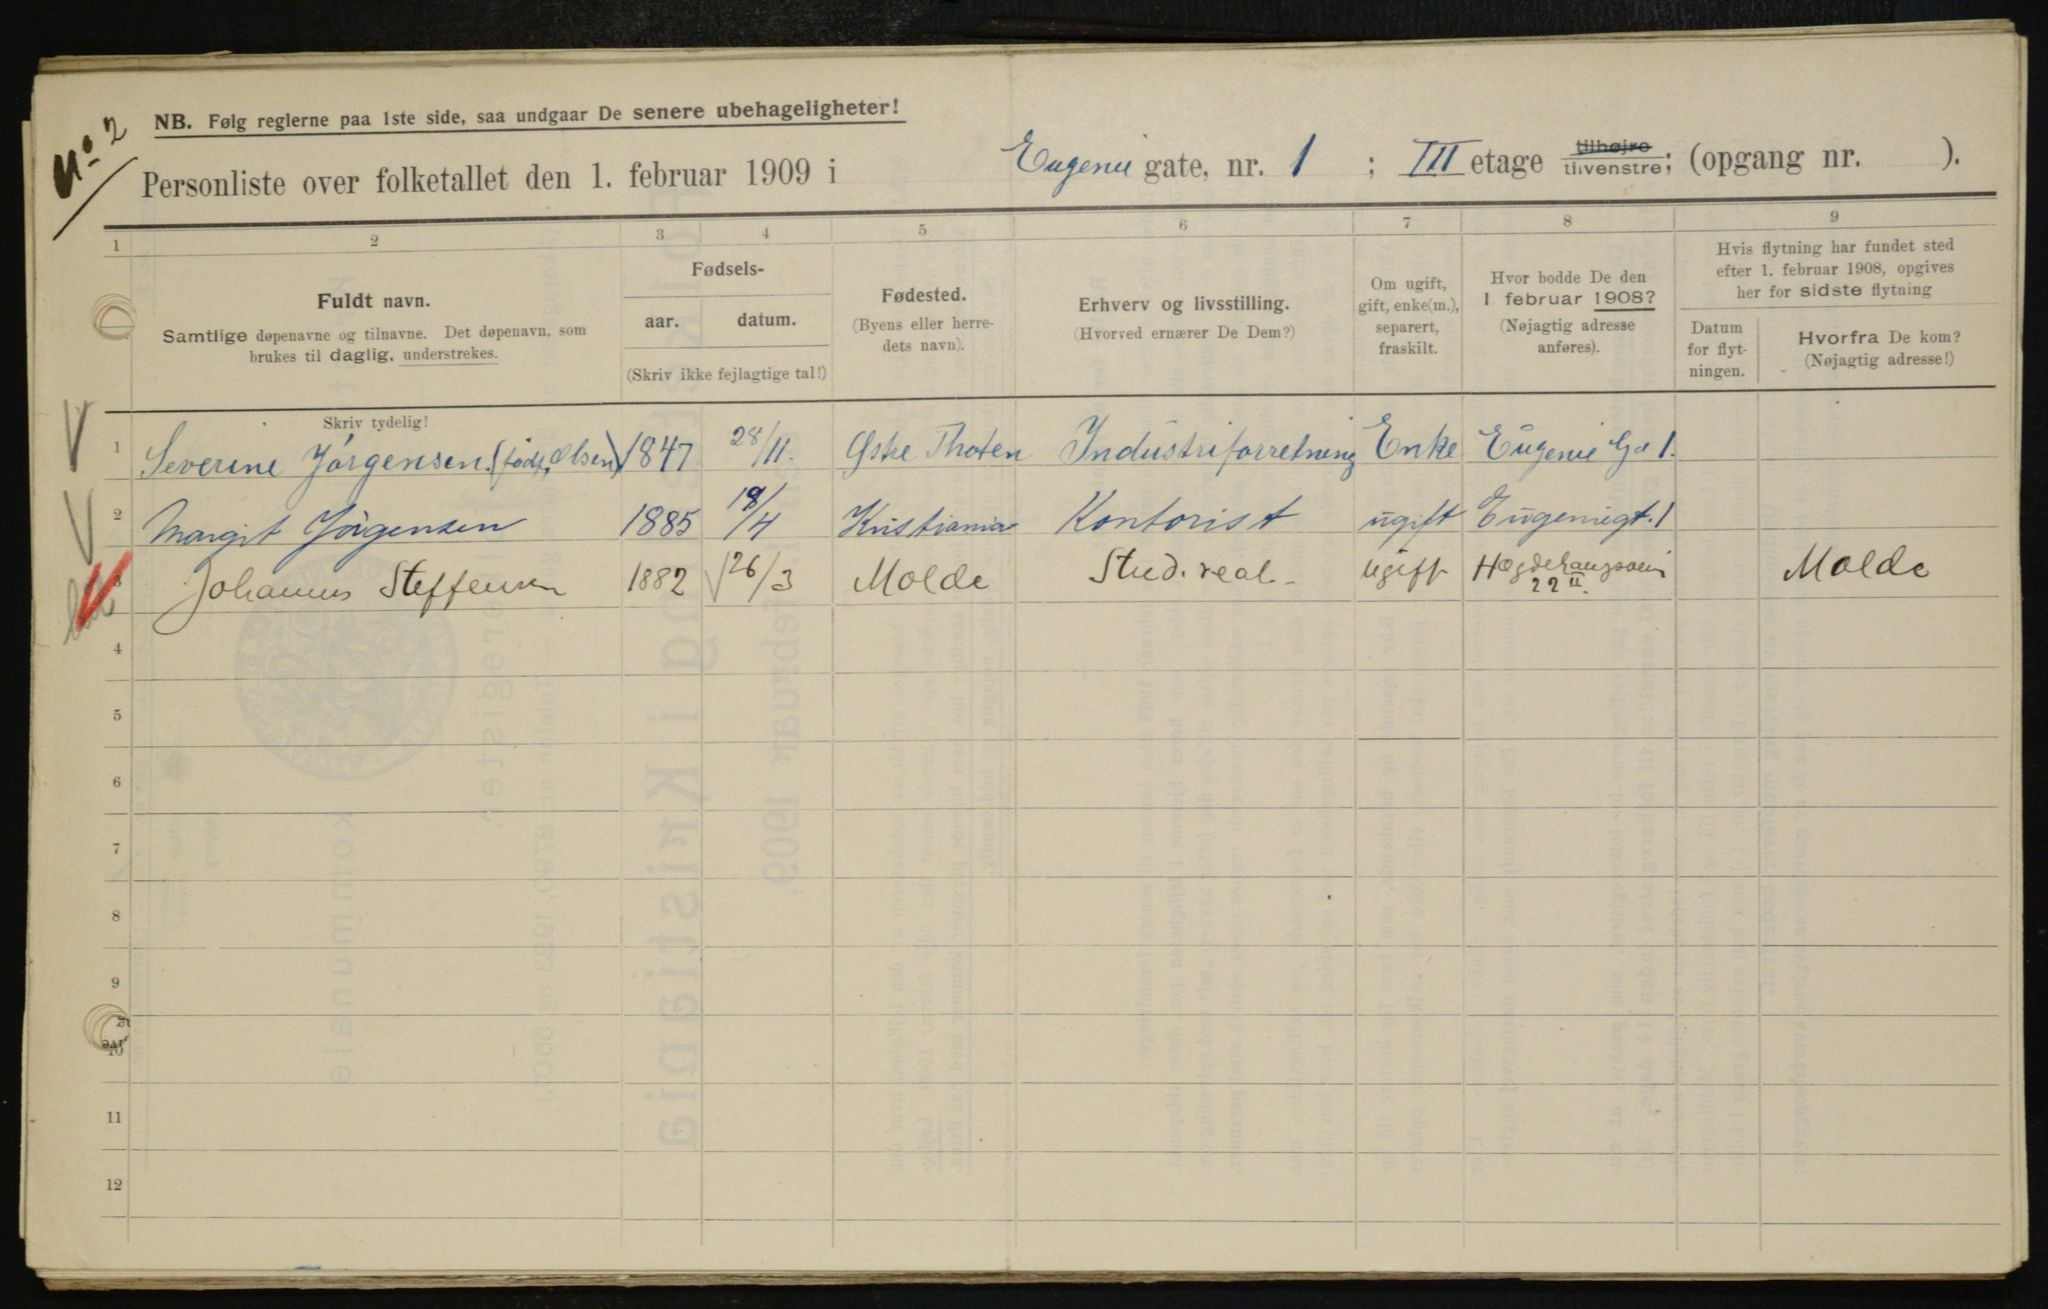 No 2
NB. Følg reglerne paa 1ste side, saa undgaar De senere ubehageligheter!
Personliste over folketallet den 1. februar 1909 i Eugenie gate, nr. 1 ; III etage tilhøjre tilvenstre; (opgang nr. ).
1 2 3 4 5 6 7 8 9
Fuldt navn.
Samtlige døpenavne og tilnavne. Det døpenavn, som
brukes til daglig, understrekes.
Skriv tydelig!
Fødsels-
aar. datum.
(Skriv ikke fejlagtige tal!)
Fødested.
(Byens eller herre-
dets navn).
Erhverv og livsstilling.
(Hvorved ernærer De Dem?)
Om ugift,
gift, enke(m.),
separert,
fraskilt.
Hvor bodde De den
1. februar 1908?
(Nøjagtig adresse
anføres).
Hvis flytning har fundet sted
efter 1. februar 1908, opgives
her for sidste flytning
Datum
for flyt-
ningen.
Hvorfra De kom?
(Nøjagtig adresse!)
1 Severine Jörgensen (født Olsen) 1847 28/11. Østre Thoten Industriforretning Enke Eugenie Gd 1.
2 Margit Jörgensen 1885 18/4 Kristiania Kontorist ugift Eugeniegt. 1
3 Johannes Steffensen 1882 26/3 Molde Stud. real. ugift 22 II. Molde
4
5
6
7
8
9
10
11
12